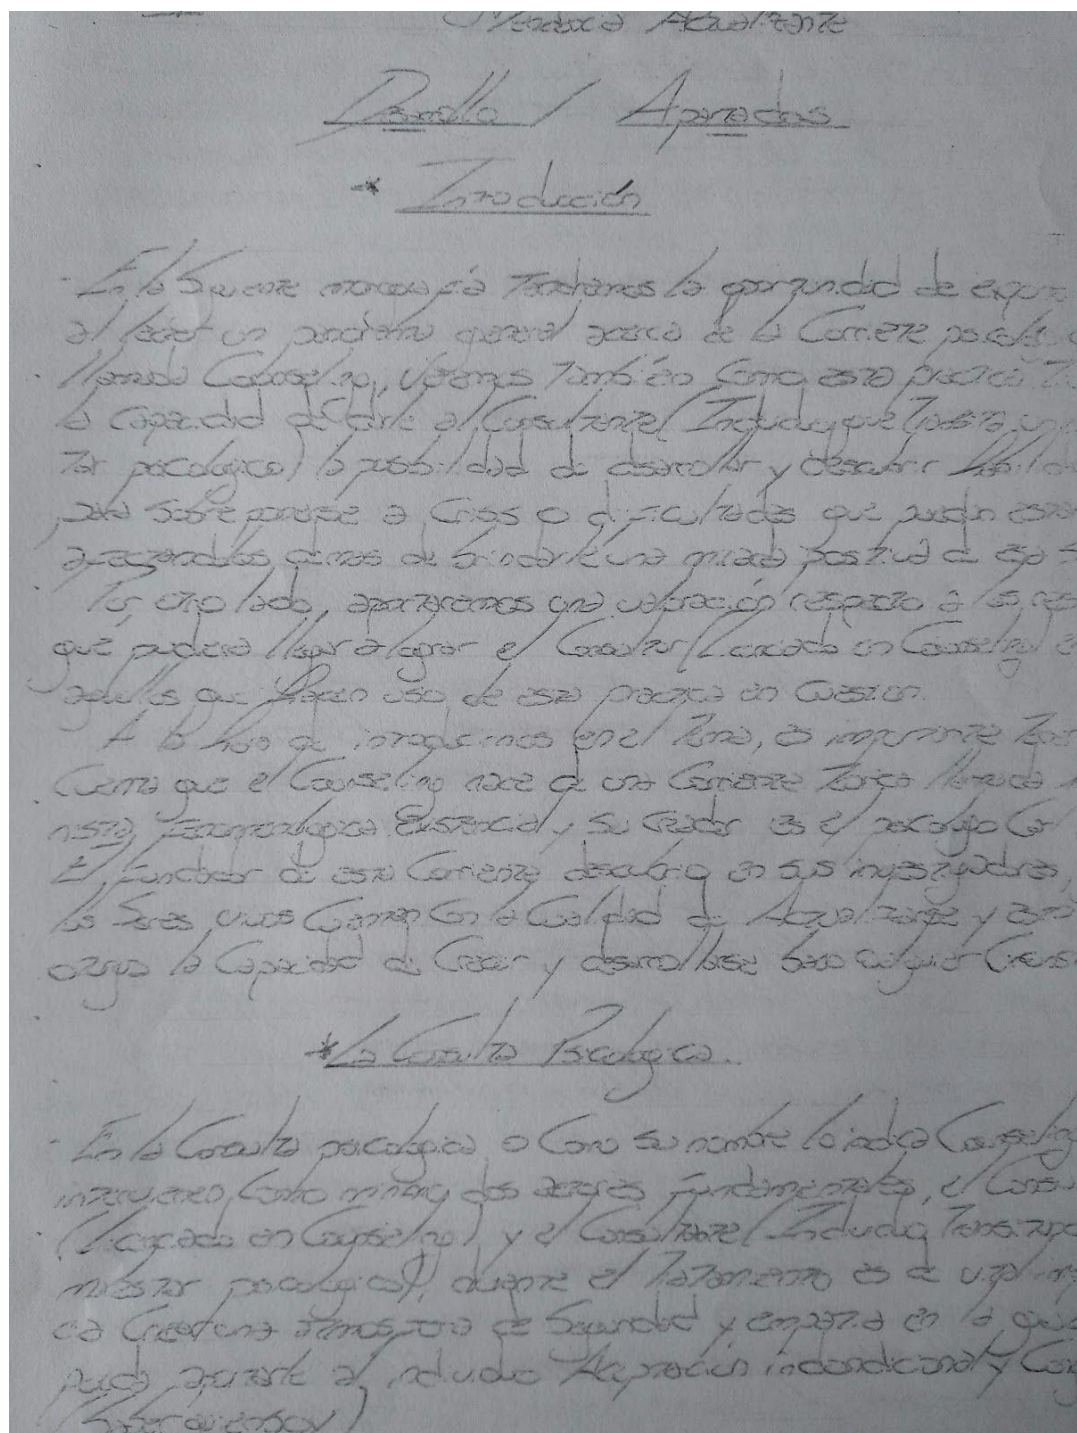 Tendencia Actualizante
Desarrollo / Apartados
* Introducción
- En la siguiente monografía Tendremos la oportunidad de
al lector un panorama general acerca de la Corriente
llamada Counseling, Veremos También Cómo esta practica
la Capacidad de darle al Consultante (Individuo que Transita un
Tar psicologico) la posibilidad de desarrollar y descubrir
para Sobreponerse a Crisis o dificultades que puedan estar
afectandolos ademas de brindarle una mirada positiva de esa
Por otro lado, aportaremos una valoración respecto a los
que pudiera llegar a lograr el Consultor (Licenciado en Counseling)
aquellos que Hacen uso de esta practica en Cuestion.
A la hora de introducirnos en el Tema, es importante
Cuenta que el Counseling nace de una Corriente Teorica llamada
nista, Fenomenologica Existencial y su Creador es el psicologo
El Fundador de esta Corriente descubrio en sus investigaciones,
los Seres vivos Cuentan Con la Cualidad de Actualizante y
otorga la Capacidad de Crecer y desarrollarse bajo cualquier
* La Consulta Psicologica.
- En la Consulta psicologica o Como su nombre lo indica Counseling
intervienen Como minimo dos actores Fundamentales, el
(Licenciado en Counseling) y el Consultante (Individuo Transitando
malestar psicologico), durante el Tratamiento es de vital
cia Crear una atmosfera de Seguridad y empatia en la que
pueda aportarle al individuo Aceptación incondicional y